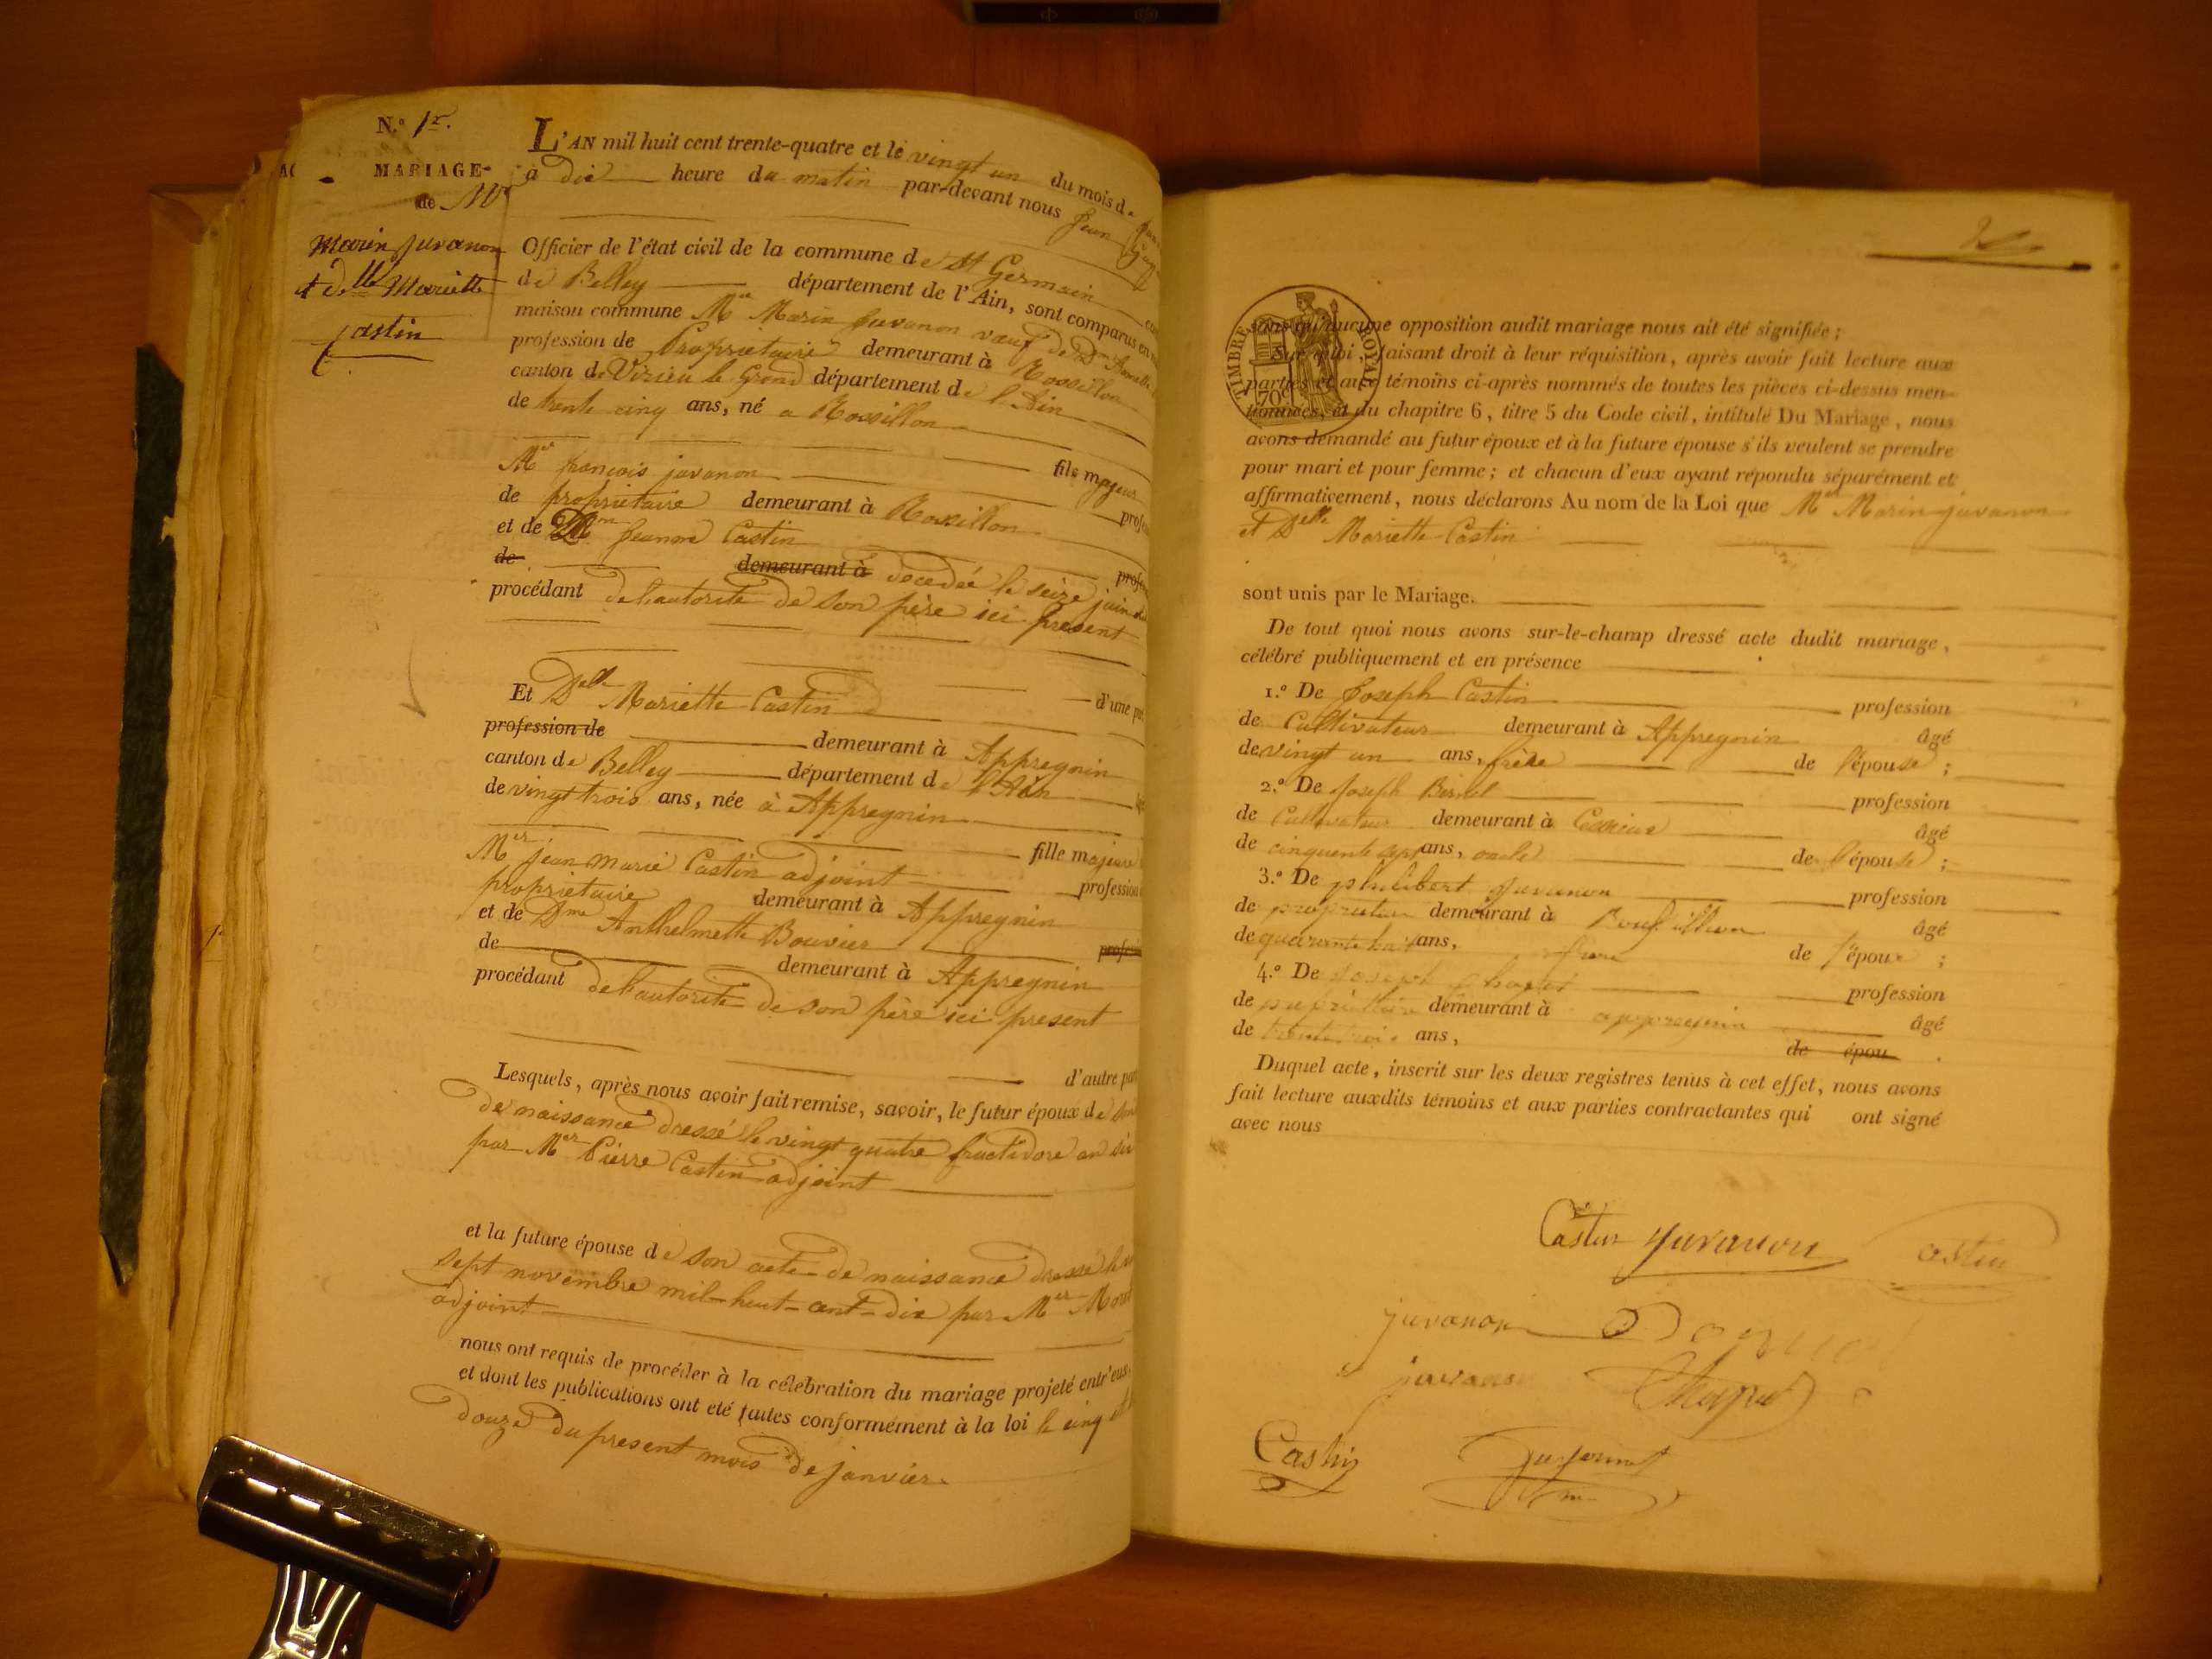 N.º 1er.
MARIAGE
de Mr
Marin Juvanon
et dlle Mariette
Castin
L'AN mil huit cent trente-quatre et le vingt un du mois de
à dix heure du matin par-devant nous Jean
Officier de l'état civil de la commune de St Germain
de Belley département de l'Ain, sont comparus en
maison commune Mr Marin Juvanon veuf de Dme
profession de Propriétaire demeurant à Rossillon
canton de Virieu le Grand département de l'Ain
de trente cinq ans, né a Rossillon
fils majeur
Mr françois juvanon
de propriétaire demeurant à Rossillon
et de Dme Jeanne Castin
de demeurant à décédée le seize juin
procédant de l'autorité de son père ici présent
d'une
Et Delle Mariette Castin
profession de demeurant à Appregnin
canton de Belley département de l'Ain
de vingt trois ans, née à Appregnin
fille majeure
Mer jean marie Castin adjoint profession
propriétaire demeurant à Appregnin
et de Dme Anthelmette Bouvier
de demeurant à Appregnin
procédant de l'autorité de son père ici présent
d'autre
Lesquels, après nous avoir fait remise, savoir, le futur époux de son
de naissance dressé le vingt quatre fructidore an six
par Mer Pierre Castin adjoint
et la future épouse de son acte de naissance dressé le
sept novembre mil huit cent dix par Mer
adjoint
nous ont requis de procéder à la célébration du mariage projeté entr'eux
et dont les publications ont été faites conformément à la loi le cinq et
douze du present mois de janvier
TIMBRE ROYAL
70c
sans qu'aucune opposition audit mariage nous ait été signifiée ;
Sur quoi, faisant droit à leur réquisition, après avoir fait lecture aux
parties et aux témoins ci-après nommés de toutes les pièces ci-dessus men-
tionnées, et du chapitre 6, titre 5 du Code civil, intitulé Du Mariage, nous
avons demandé au futur époux et à la future épouse s'ils veulent se prendre
pour mari et pour femme ; et chacun d'eux ayant répondu séparément et
affirmativement, nous déclarons Au nom de la Loi que Mer Marin juvanon
et Delle Mariette Castin
sont unis par le Mariage.
De tout quoi nous avons sur-le-champ dressé acte dudit mariage,
célébré publiquement et en présence
1.º De Joseph Castin profession
de Cultivateur demeurant à Appregnin âgé
de vingt un ans, frère de l'épouse ;
2.º De Joseph profession
de Cultivateur demeurant à Cessieux âgé
de cinquente sept ans, oncle de l'épouse ;
3.º De philibert juvanon profession
de demeurant à âgé
de quarante huit ans, frere de l'époux ;
4.º De joseph chapet profession
de propriétaire demeurant à appregnin âgé
de trente trois ans, de épou
Duquel acte, inscrit sur les deux registres tenus à cet effet, nous avons
fait lecture auxdits témoins et aux parties contractantes qui ont signé
avec nous
Castin Juvanon Castin
juvanon
juvanon Chapet
Castin